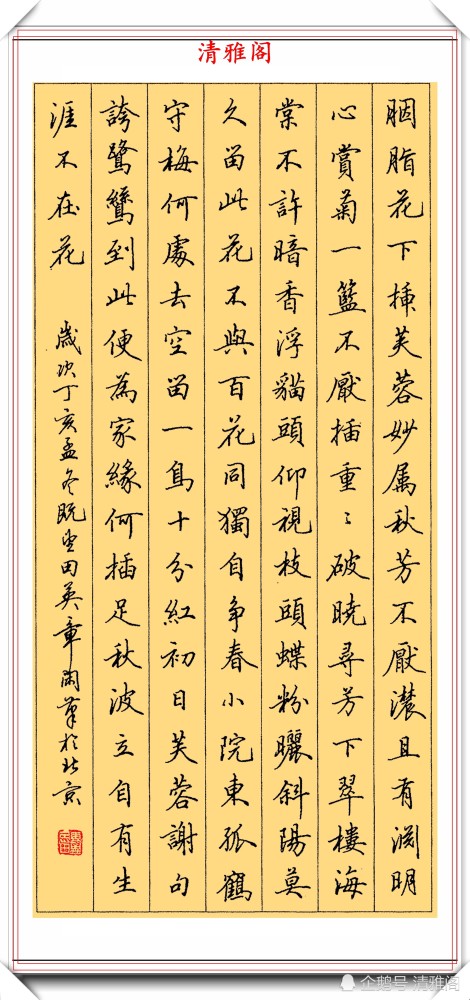 清雅阁
胭脂花下挿芙蓉妙属秋芳不厭濃且有渊明
心賞菊一籃不厭插重〻破曉尋芳下翠樓海
棠不許暗香浮貓頭仰視枝頭蝶粉曬斜陽莫
久留此花不與百花同獨自争春小院東孤鶴
守梅何處去空留一鳥十分紅初日芙蓉謝句
誇鷺鷥到此便為家緣何插足秋波立自有生
涯不在花
歲次丁亥孟冬既望田英章閑筆於北京
企鹅号 清雅阁